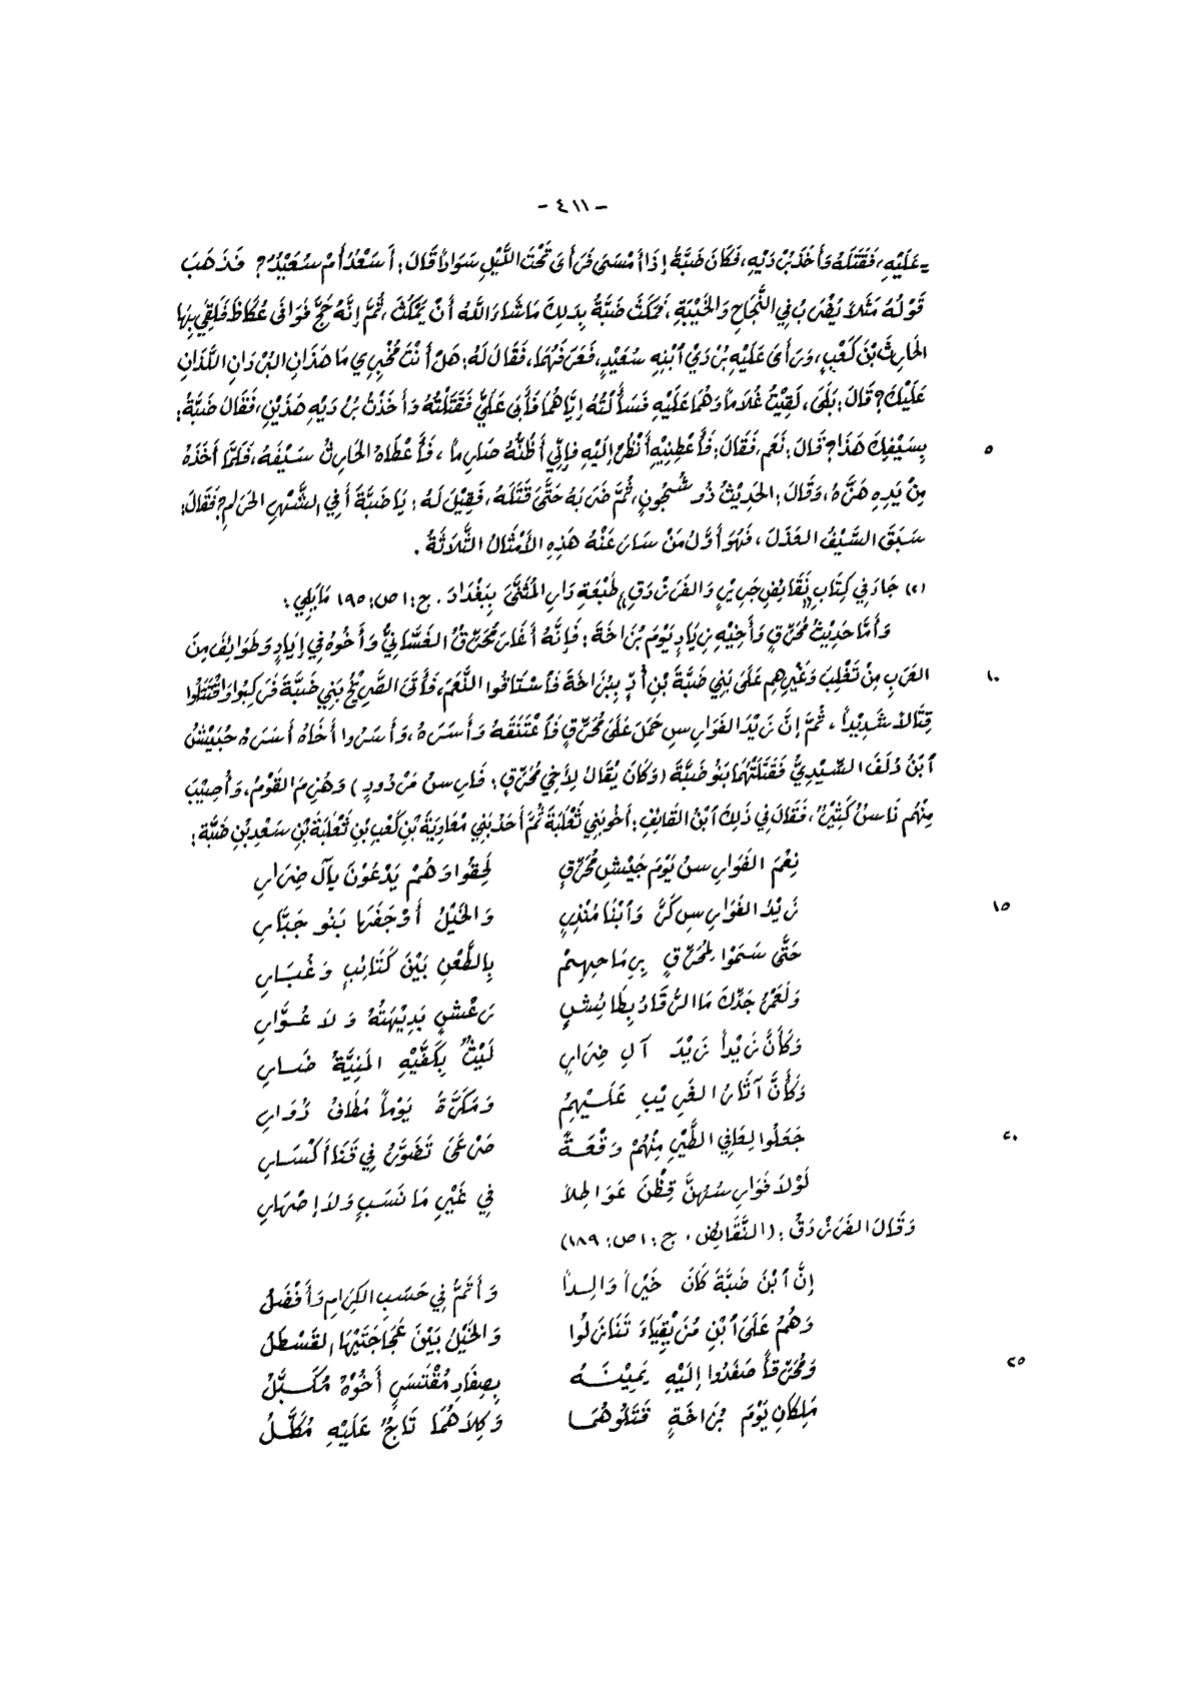 - ٤١١ -
= عَلَيْهِ، فَقَتَلَهُ وَأَخَذَ بُرْدَيْهِ، فَكَانَ ضَبَّةُ إِذَا أَمْسَى فَرَأَى تَحْتَ اللَّيْلِ سَوَادًا قَالَ: أَسَعْدٌ أَمْ سُعَيْدٌ؟ فَذَهَبَ
قَوْلُهُ مَثَلاً يُضْرَبُ فِي النَّجَاحِ وَالخَيْبَةِ، فَمَكَثَ ضَبَّةُ بِذَلِكَ مَا شَاءَ اللَّهُ أَنْ يَمْكُثَ، ثُمَّ إِنَّهُ حَجَّ فَوَافَى عُكَاظَ فَلَقِيَ بِهَا
الحَارِثَ بْنَ كَعْبٍ، وَرَأَى عَلَيْهِ بُرْدَيْ ٱبْنِهِ سُعَيْدٍ، فَعَرَفَهُمَا، فَقَالَ لَهُ: هَلْ أَنْتَ مُخْبِرِي مَا هَذَانِ البُرْدَانِ اللَّذَانِ
عَلَيْكَ؟ قَالَ: بَلَى، لَقِيْتُ غُلاَماً وَهُمَا عَلَيْهِ فَسَأَلْتُهُ إِيَّاهُمَا فَأَبَى عَلَيَّ فَقَتَلْتُهُ وَأَخَذْتُ بُرْدَيْهِ هَذَيْنِ، فَقَالَ ضَبَّةُ:
بِسَيْفِكَ هَذَا؟ قَالَ: نَعَم، فَقَالَ: فَأَعْطِنِيْهِ أَنْظُرْ إِلَيْهِ فَإِنِّي أَظُنُّهُ صَارِماً، فَأَعْطَاهُ الحَارِثُ سَيْفَهُ، فَلَمَّا أَخَذَهُ ٥
مِنْ يَدِهِ هَزَّهُ، وَقَالَ: الحَدِيْثُ ذُو شُجُونٍ، ثُمَّ ضَرَبَهُ حَتَّى قَتَلَهُ، فَقِيْلَ لَهُ: يَا ضَبَّةَ أَفِي الشَّهْرِ الحَرَامِ؟ فَقَالَ:
سَبَقَ السَّيْفُ العَذَلَ، فَهُوَ أَوَّلُ مَنْ سَارَ عَنْهُ هَذِهِ الأَمْثَالُ الثَّلاَثَةُ.
(٢) جَاءَ فِي كِتَابِ «نَقَائِضِ جَرِيْرٍ وَالفَرَزْدَقِ» طَبْعَةِ دَارِ المُثَنَّى بِبَغْدَادَ. ج: ١ ص: ١٩٥ مَا يَلِي:
وَأَمَّا حَدِيْثُ مُحَرِّقٍ وَأَخِيْهِ زِيَادٍ يَوْمَ بُزَاخَةَ: فَإِنَّهُ أَغَارَ مُحَرِّقٌ الغَسَّانِيُّ وَأَخُوهُ فِي إِيَادٍ وَطَوَائِفَ مِنَ
العَرَبِ مِنْ تَغْلِبَ وَغَيْرِهِم عَلَى بَنِي ضَبَّةَ بْنِ أُدٍّ بِبُزَاخَةَ فَٱسْتَاقُوا النَّعَمَ، فَأَتَى الصَّرِيْخُ بَنِي ضَبَّةَ فَرَكِبُوا وَاقْتَتَلُوا ١٠
قِتَالاً شَدِيْداً، ثُمَّ إِنَّ زَيْدَ الفَوَارِسِ حَمَلَ عَلَى مُحَرِّقٍ فَٱعْتَنَقَهُ وَأَسَرَهُ، وَأَسَرُوا أَخَاهُ أَسَرَهُ حُبَيْشُ
ٱبْنُ دُلَفَ السِّيْدِيُّ فَقَتَلَتْهُمَا بَنُو ضَبَّةَ (وَكَانَ يُقَالُ لِأَخِي مُحَرِّقٍ: فَارِسُ مَرْدُودٍ) وَهُزِمَ القَوْمُ، وَأُصِيْبَ
مِنْهُم نَاسٌ كَثِيْرٌ، فَقَالَ فِي ذَلِكَ ٱبْنُ القَائِفِ: أَخُو بَنِي ثَعْلَبَةَ ثُمَّ أَحَدُ بَنِي مُعَاوِيَةَ بْنِ كَعْبِ بْنِ ثَعْلَبَةَ بْنِ سَعْدِ بْنِ ضَبَّةَ:
نِعْمَ الفَوَارِسُ يَوْمَ جَيْشِ مُحَرِّقٍ لَحِقُوا وَهُمْ يَدْعُوْنَ يَآلَ ضِرَارِ
زَيْدُ الفَوَارِسِ كَرَّ وَٱبْنَا مُنْذِرٍ وَالخَيْلُ أَوْجَفَهَا بَنُو جَبَّارِ ١٥
حَتَّى سَمَوْا لِمُحَرِّقٍ بِرِمَاحِهِمْ بِالطَّعْنِ بَيْنَ كَتَائِبٍ وَغُبَارِ
وَلَعَمْرُ جَدِّكَ مَا الرُّقَادُ بِطَائِشٍ رَعْشٍ بَدِيْهَتُهُ وَلاَ عُوَّارِ
وَكَأَنَّ زَيْداً زَيْدَ آلِ ضِرَارٍ لَيْثٌ بِكَفَّيْهِ المَنِيَّةُ ضَارِ
وَكَأَنَّ آثَارَ الغَرِيْبِ عَلَيْهِمُ وَمَكَرَّهُ يَوْماً مُطَافُ دُوَارِ
جَعَلُوا لِعَافِي الطَّيْرِ مِنْهُمْ وَقْعَةً صَرْعَى تَضَوَّرُ فِي قَنَا أَكْسَارِ ٢٠
لَوْلاَ فَوَارِسُهُنَّ قِظْنَ عَوَاطِلاً فِي غَيْرِ مَا نَسَبٍ وَلاَ إِصْهَارِ
وَقَالَ الفَرَزْدَقُ: (النَّقَائِض. ج: ١ ص: ١٨٩)
إِنَّ ٱبْنَ ضَبَّةَ كَانَ خَيْراً وَالِداً وَأَتَمَّ فِي حَسَبِ الكِرَامِ وَأَفْضَلُ
وَهُمُ عَلَى ٱبْنِ مُزَيْقِيَاءَ تَنَازَلُوا وَالخَيْلُ بَيْنَ عَجَاجَتَيْهَا القَسْطَلُ
وَمُحَرِّقاً صَفَدُوا إِلَيْهِ يَمِيْنَهُ بِصِفَادِ مُقْتَسَرٍ أَخُوْهُ مُكَبَّلُ ٢٥
مَلِكَانِ يَوْمَ بُزَاخَةٍ قَتَلُوهُمَا وَكِلاَهُمَا تَاجٌ عَلَيْهِ مُكَلَّلُ